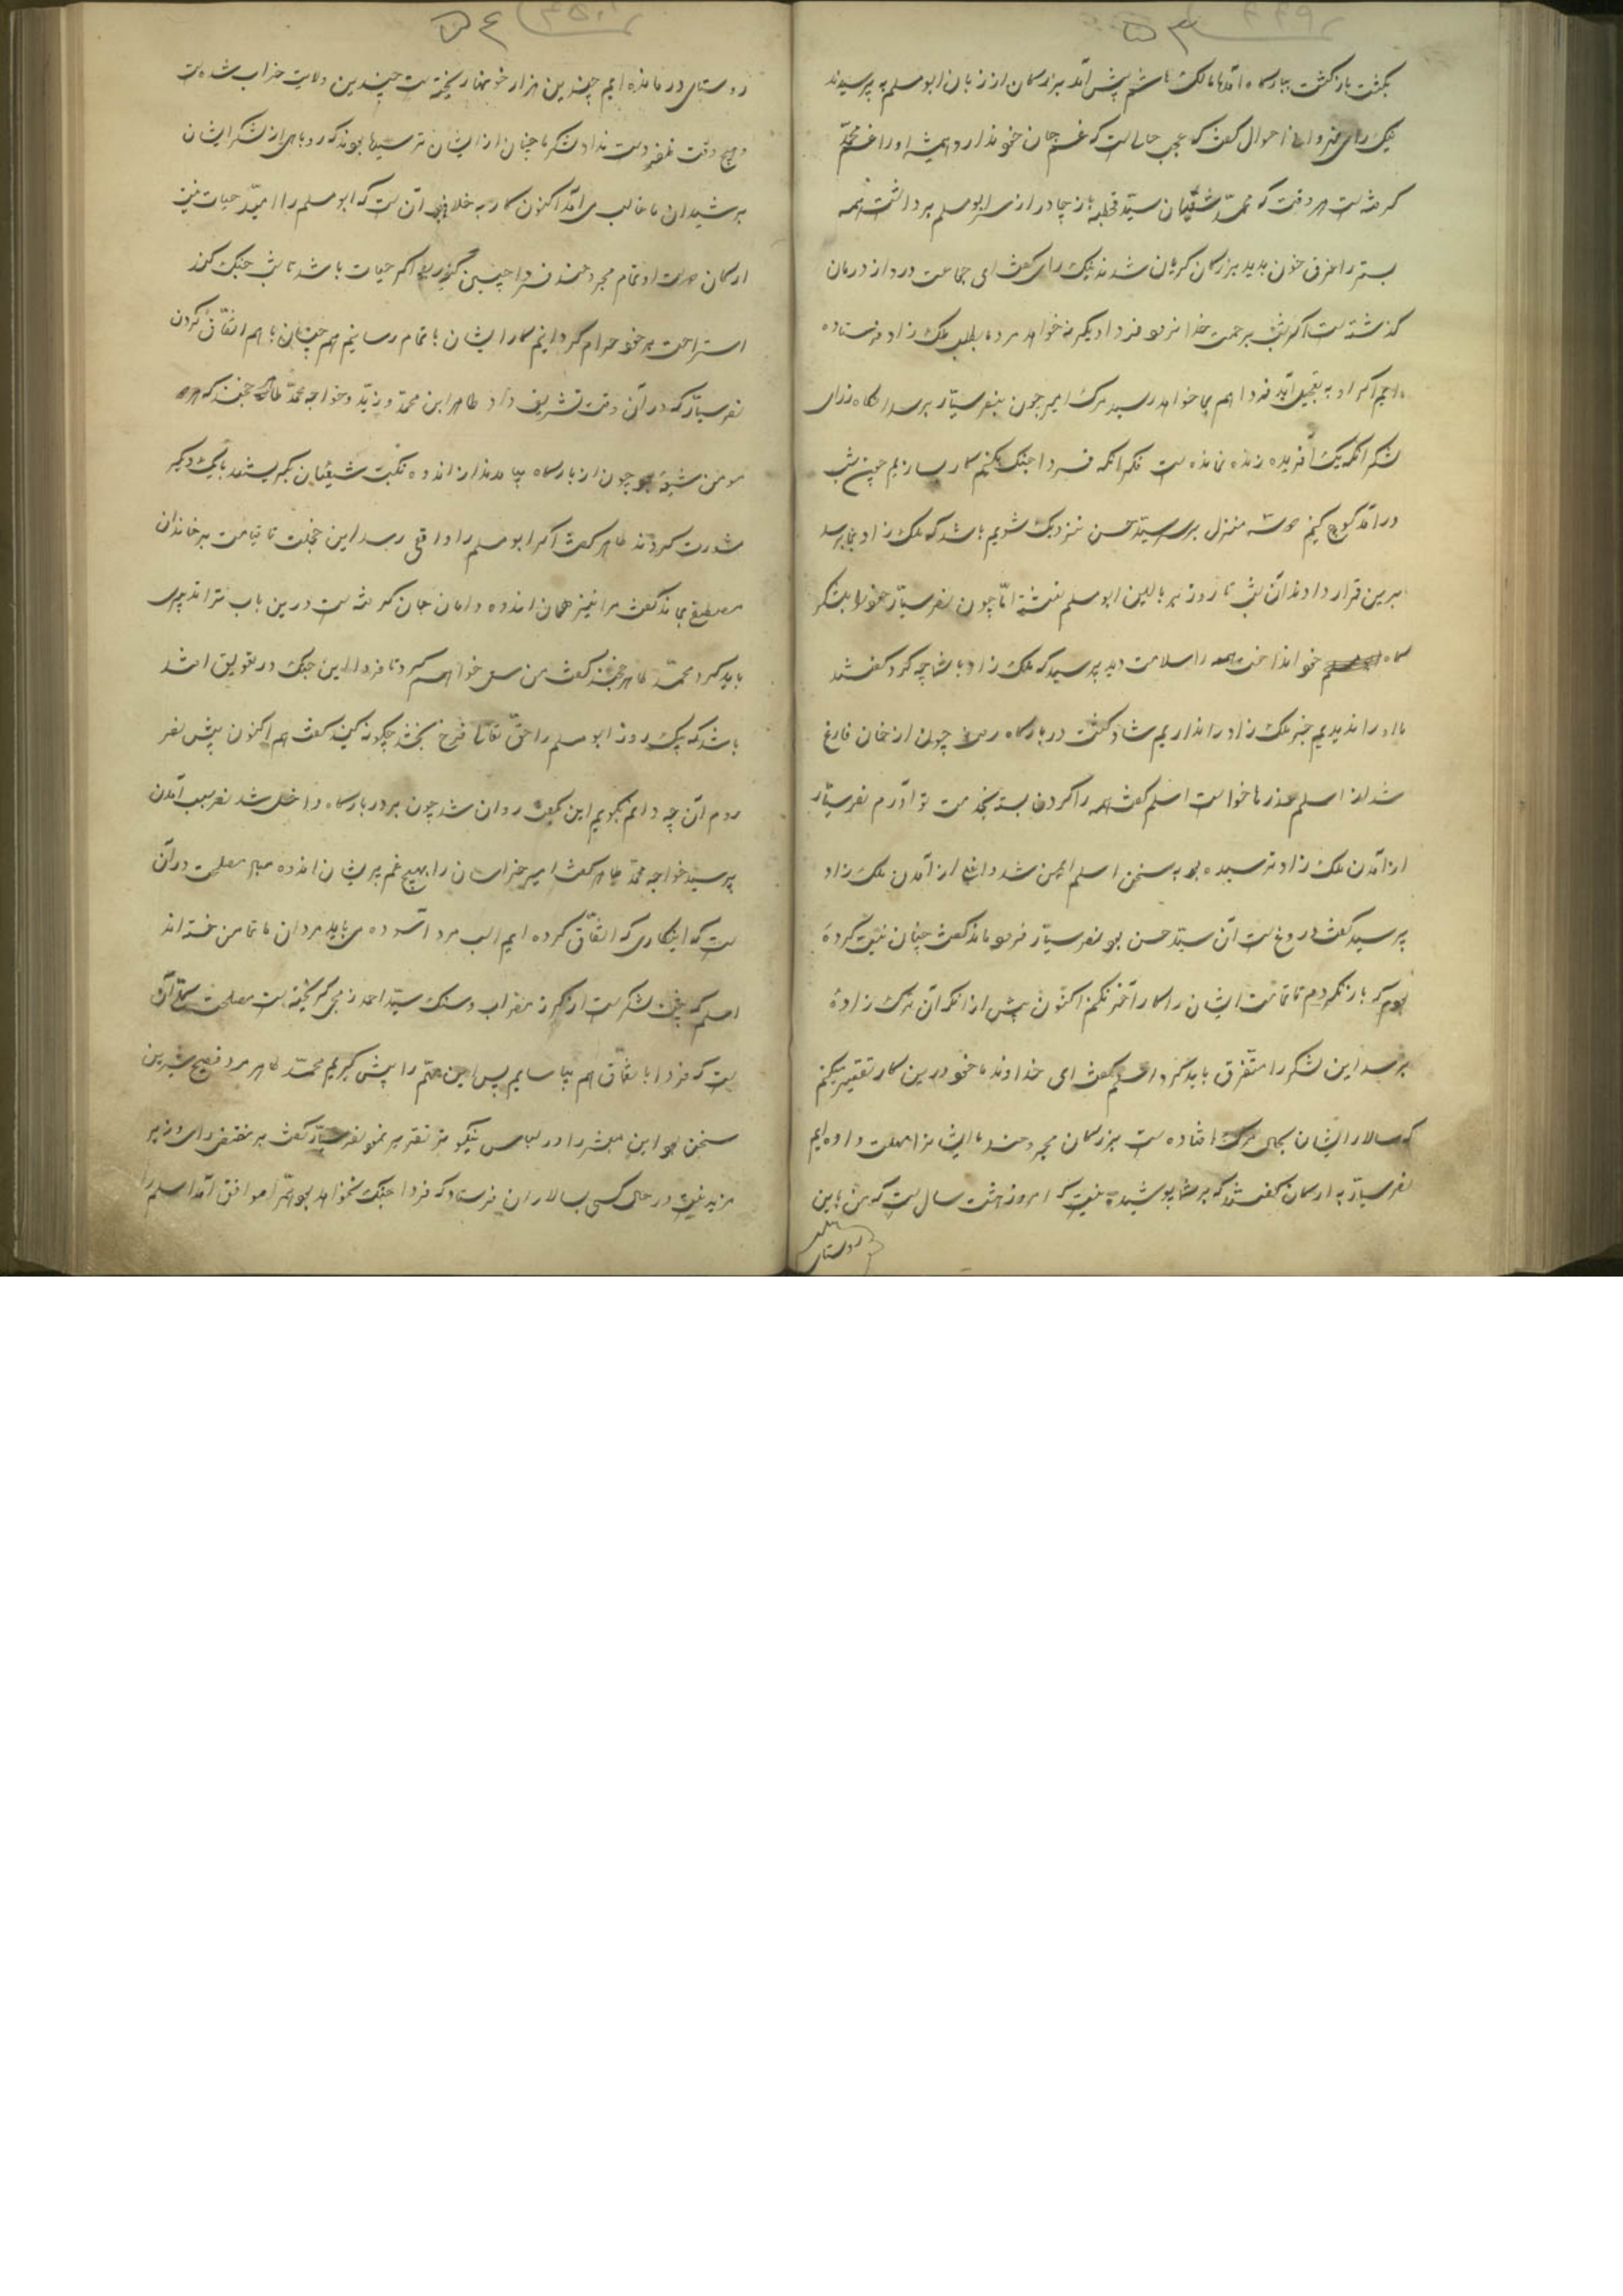 ۵۳
بگفت بازگشت ببارگاه آمدها مالک هاشم پیش آمد بزرگان از زبان ابومسلم پرسیدند
نیک رای احوال گفت که عجب حالیست که غم جان خود ندارد همیشه او را غم محمد
گرفتست هر وقت که محمد شقیبان سید قحطبه باز چادر از سر ابومسلم برداشت همه
بستر را غرق خون بدید بزرگان گریان شدند نیک رای گفت ای جماعت درد از درمان
گذشته است اگر شب برحمت خدا نرود فردا دیگر نخواهد مرد ما بطلب ملک زاد فرستاده
ایم اگر او به تعجیل آید فردا هم بما خواهد رسید مرگ امیر چون بنصر سیار برسد آنگاه زرای
لشکر آنکه یک آفریده زنده نمانده است فکر آنکه فردا جنگ بکنیم کار بسازیم چون شب
درآمد کوچ کنیم سه منزل بر سید حسن نزدیک شویم باشد که ملک زاد بما برسد
برین قرار دادند آن شب تا روز بر بالین ابومسلم نشستند اما چون نصر سیار خود را بلشکر
گاه خود انداخت همه را سلامت دید پرسید که ملک زاد با شما چه کرد گفتند
ما او را ندیدیم خبر ملک زاد را نداریم شاد گشت در بارگاه رفت چون از خان فارغ
شد از اسلم عذرها خواست اسلم گفت همه را گردن بسته بخدمت تو آورم نصر سیار
از آمدن ملک زاد ترسیده بود به سخن اسلم ایمن شد و از آمدن ملک زاد
پرسید گفت دروغست آن سید حسن بود نصر سیار فرو ماند گفت چنان نیت کرده
بودم که باز نگردم تا تمامت ایشان را کار آخر نکنم اکنون پیش از آنکه آن ترک زاده
برسد این لشکر را متفرق باید کرد اسلم گفت ای خداوند ما خود درین کار تقصیر نکنیم
که سالار ایشان بحال مرگ افتاده است بزرگان مجروحند ما ایشانرا مهلت داده ایم
نصر سیار به ارکان گفت که بر شما پوشیده نیست که امروز هشت سال است که من باین
روستای
۵۴
روستای درمانده ایم چندین هزار خونها ریخته است چندین ولایت خراب شده است
و هیچ وقت ظفر دست نداد لشکر ما چنان از ایشان ترسیده بودند که روباهی از لشکر ایشان
بر شیران ما غالب می آمد اکنون کار به خلاف آن است که ابومسلم را امید حیات نیست
ارکان دولت او تمام مجروحند فردا چنین اگر حیات باشد تا شب جنگ کنند
استراحت بر خود حرام گردانیم کار ایشان با تمام رسانیم هم چنان با هم اتفاق کردن
نصر سیار که در آن وقت تشریف داد طاهر ابن محمد وزید و خواجه محمد طاهر خجند که
مومن شیعه بود چون از بارگاه بیامدند از اندوه نکبت شیعیان بگریستند با یک دیگر
مشورت کردند طاهر گفت اگر ابومسلم را واقعه رسد این خجلت تا قیامت بر خاندان
مصطفی بماند گفت مرا نیز همان اندوه دامان جان گرفته است درین باب تدبیری
باید کرد محمد طاهر خجند گفت من سعی خواهم کرد تا فردا این جنگ در تعویق افتد
باشد که یک روز ابومسلم را حق تعالی فرح بخشد چگونه کنید گفت هم اکنون پیش نصر
روم آن چه دانم بگویم این بگفت روان شد چون بر در بارگاه داخل شد نصر سبب آمدن
پرسید خواجه محمد طاهر گفت امیر خراسان را هیچ غم پریشان اندوه مباد مصلحت در آن
است که اینکاری که اتفاق کرده ایم اسب مرد آسوده می باید مردان ما تمامن خسته اند
اسلم که پشت لشکرست از گرز مضراب و سنگ سید احمد زمجی گریخته است مصلحت آن
است که فردا با اتفاق هم بیاساییم پس این مهم را پیش گیریم محمد طاهر مرد فصیح شیرین
سخن بود این را در لباس نیکو تر تقریر نمود نصر سیار گفت بر مقتضی رای وزیر
مزید نیست در حال کسی بسالاران فرستاد که فردا جنگ نخواهد بود همه را موافق آمد اسلم را